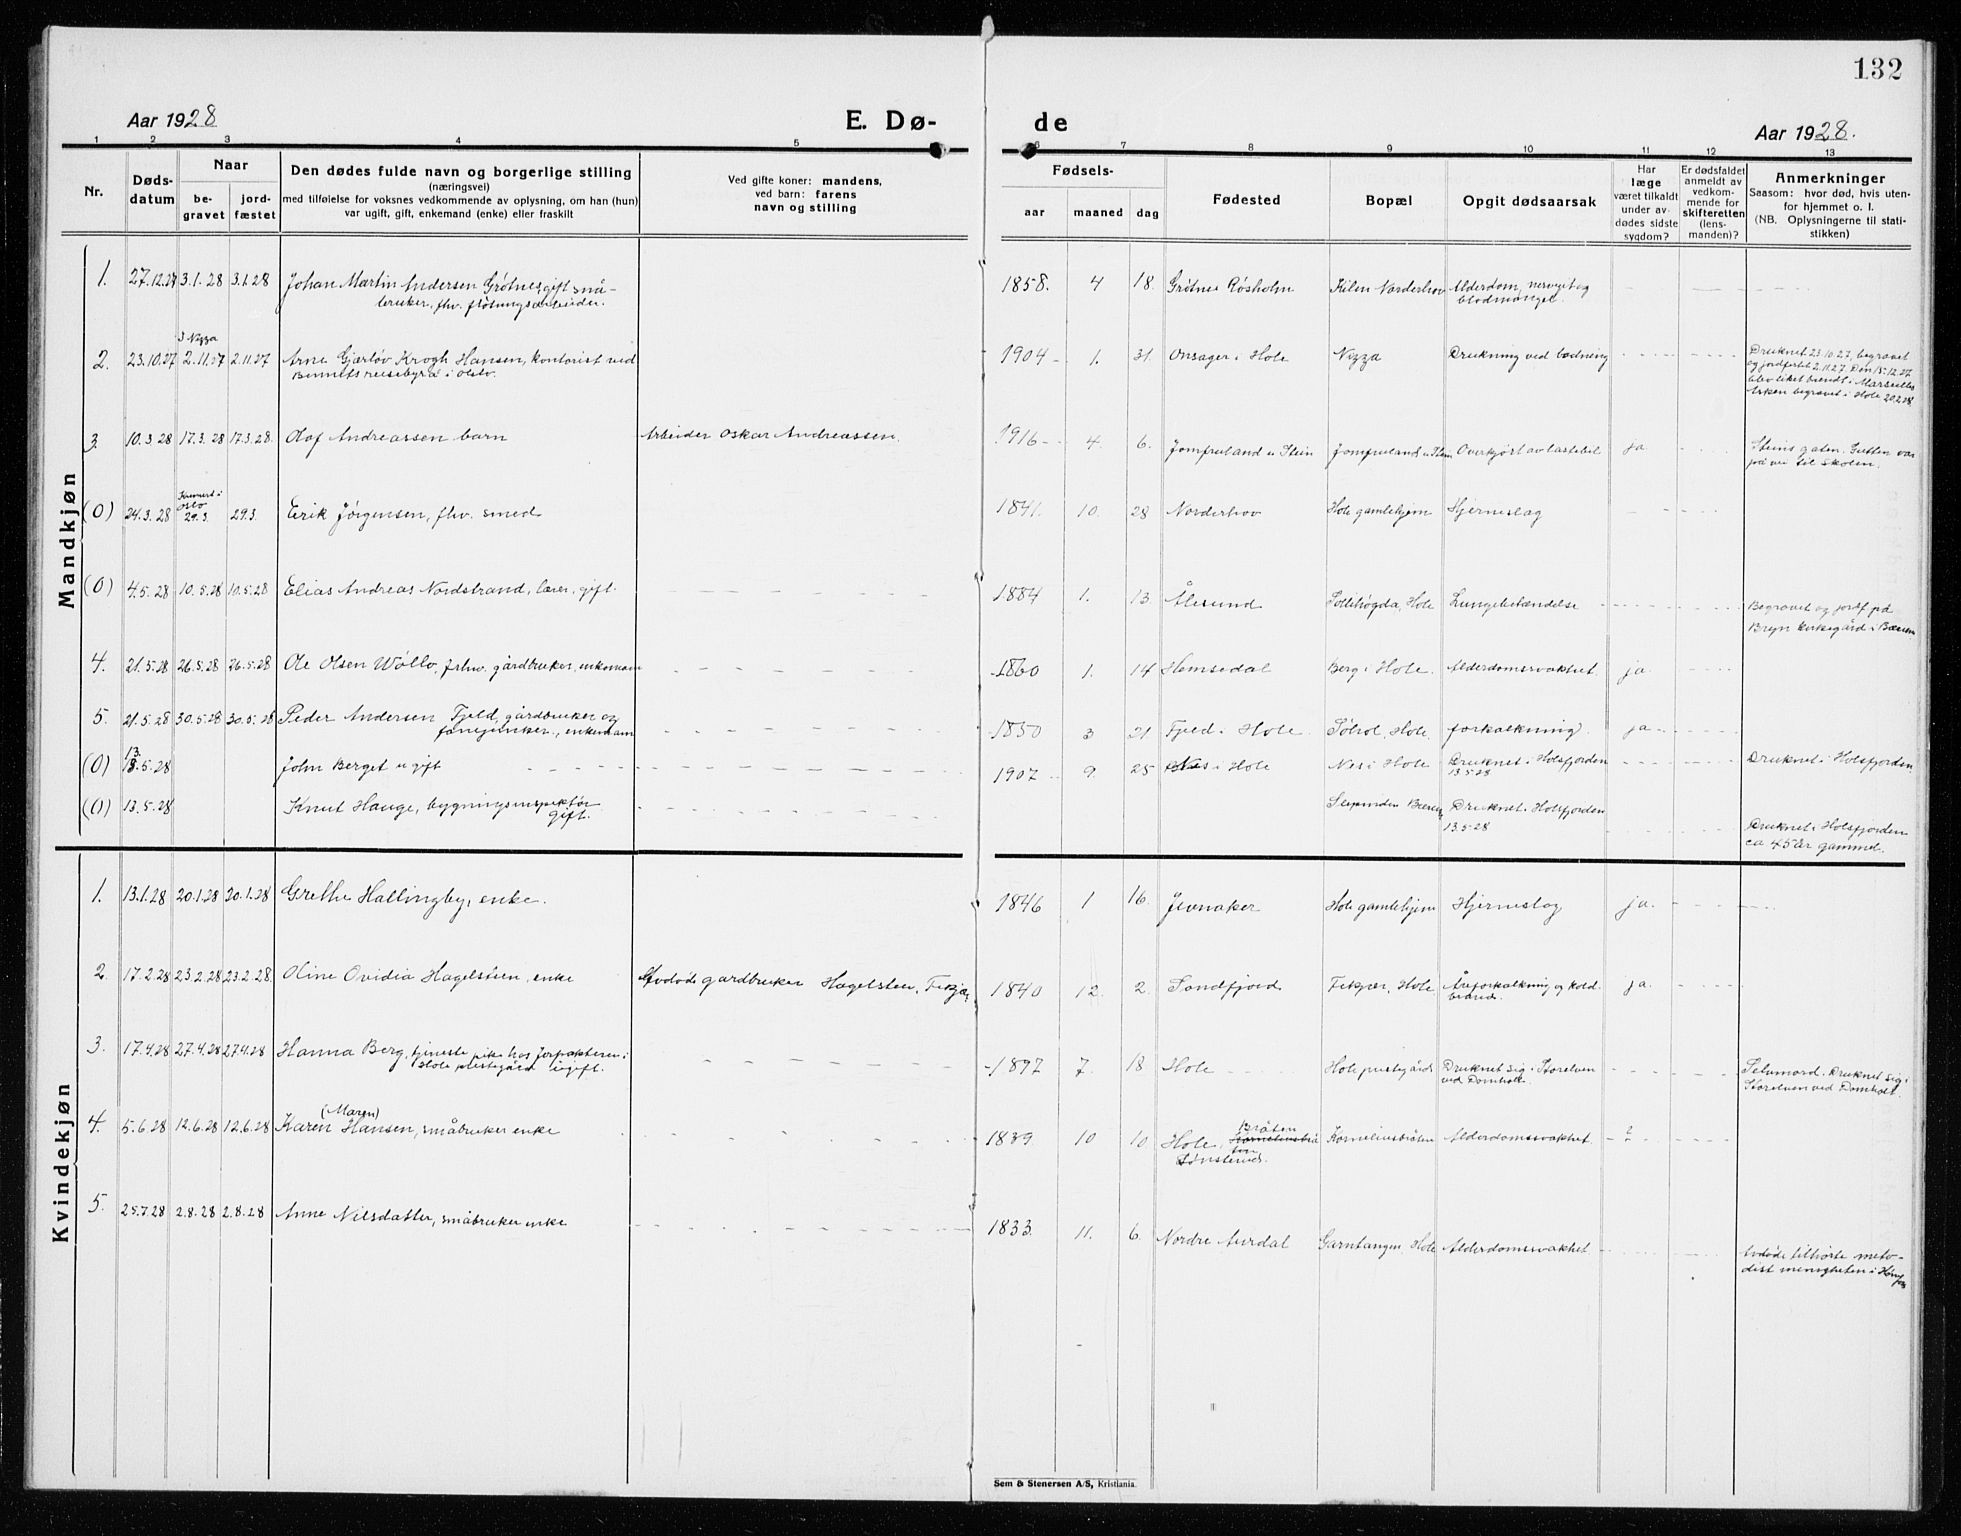 132
Aar 1928
E. Dø-
de
Aar 1928.
1 2 3 4 5 6 7 8 9 10 11 12 13
Nr.
Døds-
datum
Naar
be-
gravet
jord-
fæstet
Den dødes fulde navn og borgerlige stilling
(næringsvei)
med tilføielse for voksnes vedkommende av oplysning, om han (hun)
var ugift, gift, enkemand (enke) eller fraskilt
Ved gifte koner: mandens,
ved barn: farens
navn og stilling
Fødsels-
aar
maaned
dag
Fødested
Bopæl
Opgit dødsaarsak
Har
læge
været tilkaldt
under av-
dødes sidste
sygdom?
Er dødsfaldet
anmeldt av
vedkom-
mende for
skifteretten
(lens-
manden)?
Anmerkninger
Saasom: hvor død, hvis uten-
for hjemmet o. l.
(NB. Oplysningerne til stati-
stikken)
Mandkjøn
1. 27.12.27 3.1.28 3.1.28 Johan Martin Andersen Grøtnes, gift små-
bruker, fhv. fløtningsarbeider.
1858. 4 18. Grøtnes Røsholm Kilen Norderhov Alderdom, nervegigt og
blodmangel.
I Nizza
2. 23.10.27 2.11.27 2.11.27 Arne Gjerløv Krogh Hansen, kontorist ved
Bennets reisebyrå i Oslo.
1904 1. 31. Onsager i Hole Nizza Drukning ved badning
Druknet 23.10.27, begravet
og jordfestet 2.11.27. Den 15.12.27
blev liket brendt i Marseilles
Asken begravet i Hole 20.2.28.
3. 10.3.28 17.3.28 17.3.28. Olaf Andreassen barn Arbeider Oskar Andreassen.
1916 4 6. Jomfruland u Stein Jomfruland u Stein Overkjørt av lastebil ja
Steins gaten. Gutten var
på vei til skolen.
Kremert i
Oslo
(0) 24.3.28 29.3. 29.3. Erik Jørgensen, fhv. smed
1841. 10. 28 Norderhov Hole gamlehjem Hjerneslag
(0) 4.5.28 10.5.28 10.5.28 Elias Andreas Nordstrand, lærer, gift.
1884 1. 13. Ålesund Sollihøgda, Hole Lungebetændelse
Begravet og jordf. på
Bryn kirkegård i Bærum
4. 21.5.28 26.5.28 26.5.28 Ole Olsen Wøllo, fhv. gårdbruker, enkemann
1860 1. 14 Hemsedal Berg i Hole. Alderdomssvakhet. ja.
5. 21.5.28 30.5.28 30.5.28 Peder Andersen Fjeld, gårdbruker og
fanejunker, enkemann
1850 3 21 Fjeld i Hole Sølvol, Hole. forkalkning. ja
(0) 13.5.28 John Berget ugift
1907 9. 25 Nes i Hole Nes i Hole Druknet i Holsfjorden
13.5.28
Druknet i Holsfjorden.
(0) 13.5.28 Knut Hauge, bygningsinspektør
gift.
Slependen Bærum Druknet i Holsfjorden
13.5.28
Druknet i Holsfjorden
ca 45 år gammel.
Kvindekjøn
1. 13.1.28 20.1.28 20.1.28 Grethe Hallingby, enke.
1846 1 16. Jevnaker Hole gamlehjem Hjerneslag ja.
2. 17.2.28 23.2.28 23.2.28. Oline Ovidia Hagelsteen, enke Avdøde gardbruker Hagelsteen, Fekjær
1840 12. 2. Sandfjord Fekjær, Hole Åreforkalkning og kold-
brand. ja.
3. 17.4.28 27.4.28 27.4.28 Hanna Berg, tjenestepike hos forpakteren i
Hole prestegård ugift.
1897 7. 18 Hole Hole prestegård Druknet sig i Storelven
ved Domholt.
Selvmord. Druknet sig i
Storelven ved Domholt.
(Maren)
4. 5.6.28 12.6.28 12.6.28 Karen Hansen, småbruker enke
1839. 10 10 Hole, Bråten
Tønsterud. Korneliusbråten Alderdomssvakhet ?
5. 25.7.28 2.8.28 2.8.28 Anne Nilsdatter, småbruker enke
1833. 11. 6. Nordre Aurdal Garntangen, Hole Alderdomssvakhet
Avdøde tilhørte meto-
dist menigheten i Hønefoss
Sem & Stenersen A/S, Kristiania.